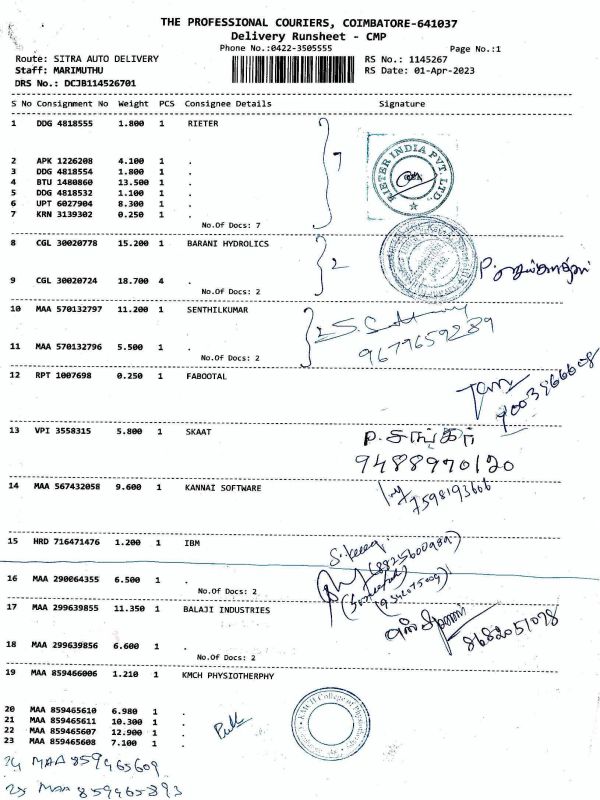 THE PROFESSIONAL COURIERS, COIMBATORE-641037
Delivery Runsheet - CMP
Phone No.:0422-3505555
Page No.:1
Route: SITRA AUTO DELIVERY
RS No.: 1145267
Staff: MARIMUTHU
RS Date: 01-Apr-2023
DRS No.: DCJB114526701
S No Consignment No Weight PCS Consignee Details Signature
1 DDG 4818555 1.800 1 RIETER
7
RIETER INDIA PVT. LTD.
2 APK 1226208 4.100 1 .
3 DDG 4818554 1.800 1 .
4 BTU 1480860 13.500 1 .
5 DDG 4818532 1.100 1 .
6 UPT 6027904 8.300 1 .
7 KRN 3139302 0.250 1 .
No.Of Docs: 7
8 CGL 30020778 15.200 1 BARANI HYDROLICS
2
9 CGL 30020724 18.700 4 .
No.Of Docs: 2
10 MAA 570132797 11.200 1 SENTHILKUMAR
2
9679659289
11 MAA 570132796 5.500 1 .
No.Of Docs: 2
12 RPT 1007698 0.250 1 FABOOTAL
13 VPI 3558315 5.800 1 SKAAT
P. சங்கர்
9488970120
14 MAA 567432058 9.600 1 KANNAI SOFTWARE
7598193606
15 HRD 716471476 1.200 1 IBM
16 MAA 290064355 6.500 1 .
No.Of Docs: 2
17 MAA 299639855 11.350 1 BALAJI INDUSTRIES
8682051078
18 MAA 299639856 6.600 1 .
No.Of Docs: 2
19 MAA 859466006 1.210 1 KMCH PHYSIOTHERPHY
20 MAA 859465610 6.980 1 .
21 MAA 859465611 10.300 1 .
22 MAA 859465607 12.900 1 .
23 MAA 859465608 7.100 1 .
24 MAA 859465609
25 MAA 859465893